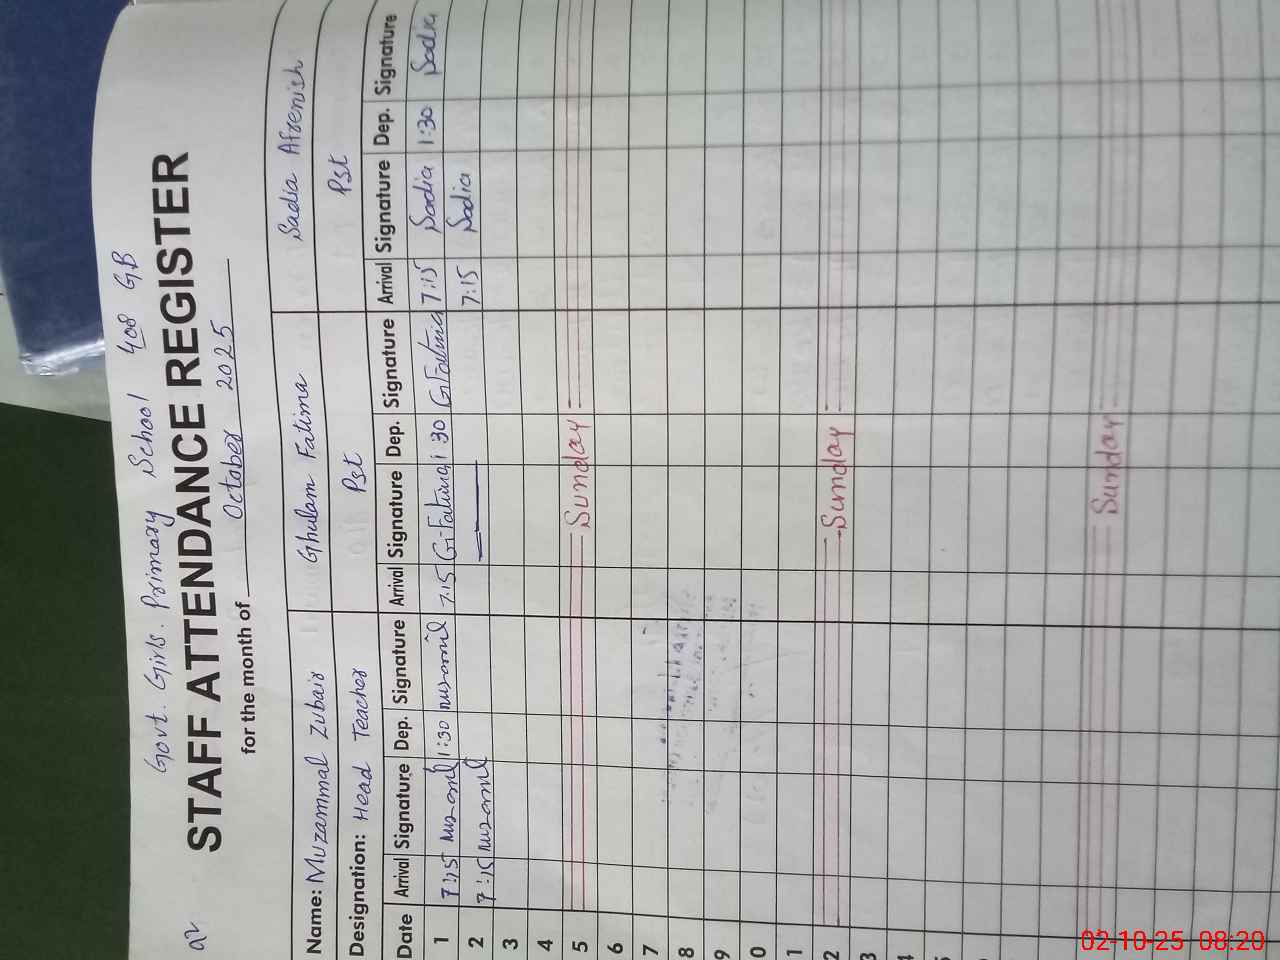 Govt. Girls. Primary School 408 GB
STAFF ATTENDANCE REGISTER
for the month of October 2025
Name: Muzammal Zubair Ghulam Fatima Sadia Afrenish
Designation: Head Teacher Pst Pst
Date Arrival Signature Dep. Signature Arrival Signature Dep. Signature Arrival Signature Dep. Signature
1 7:15 1:30 7:15 G.Fatima 1 30 G.Fatima 7:15 Sadia 1:30 Sadia
2 7:15 7:15 Sadia
3
4
5 Sunday
6
7
8
9
0
1
2 Sunday
3
4
5
Sunday
02-10-25 08:20